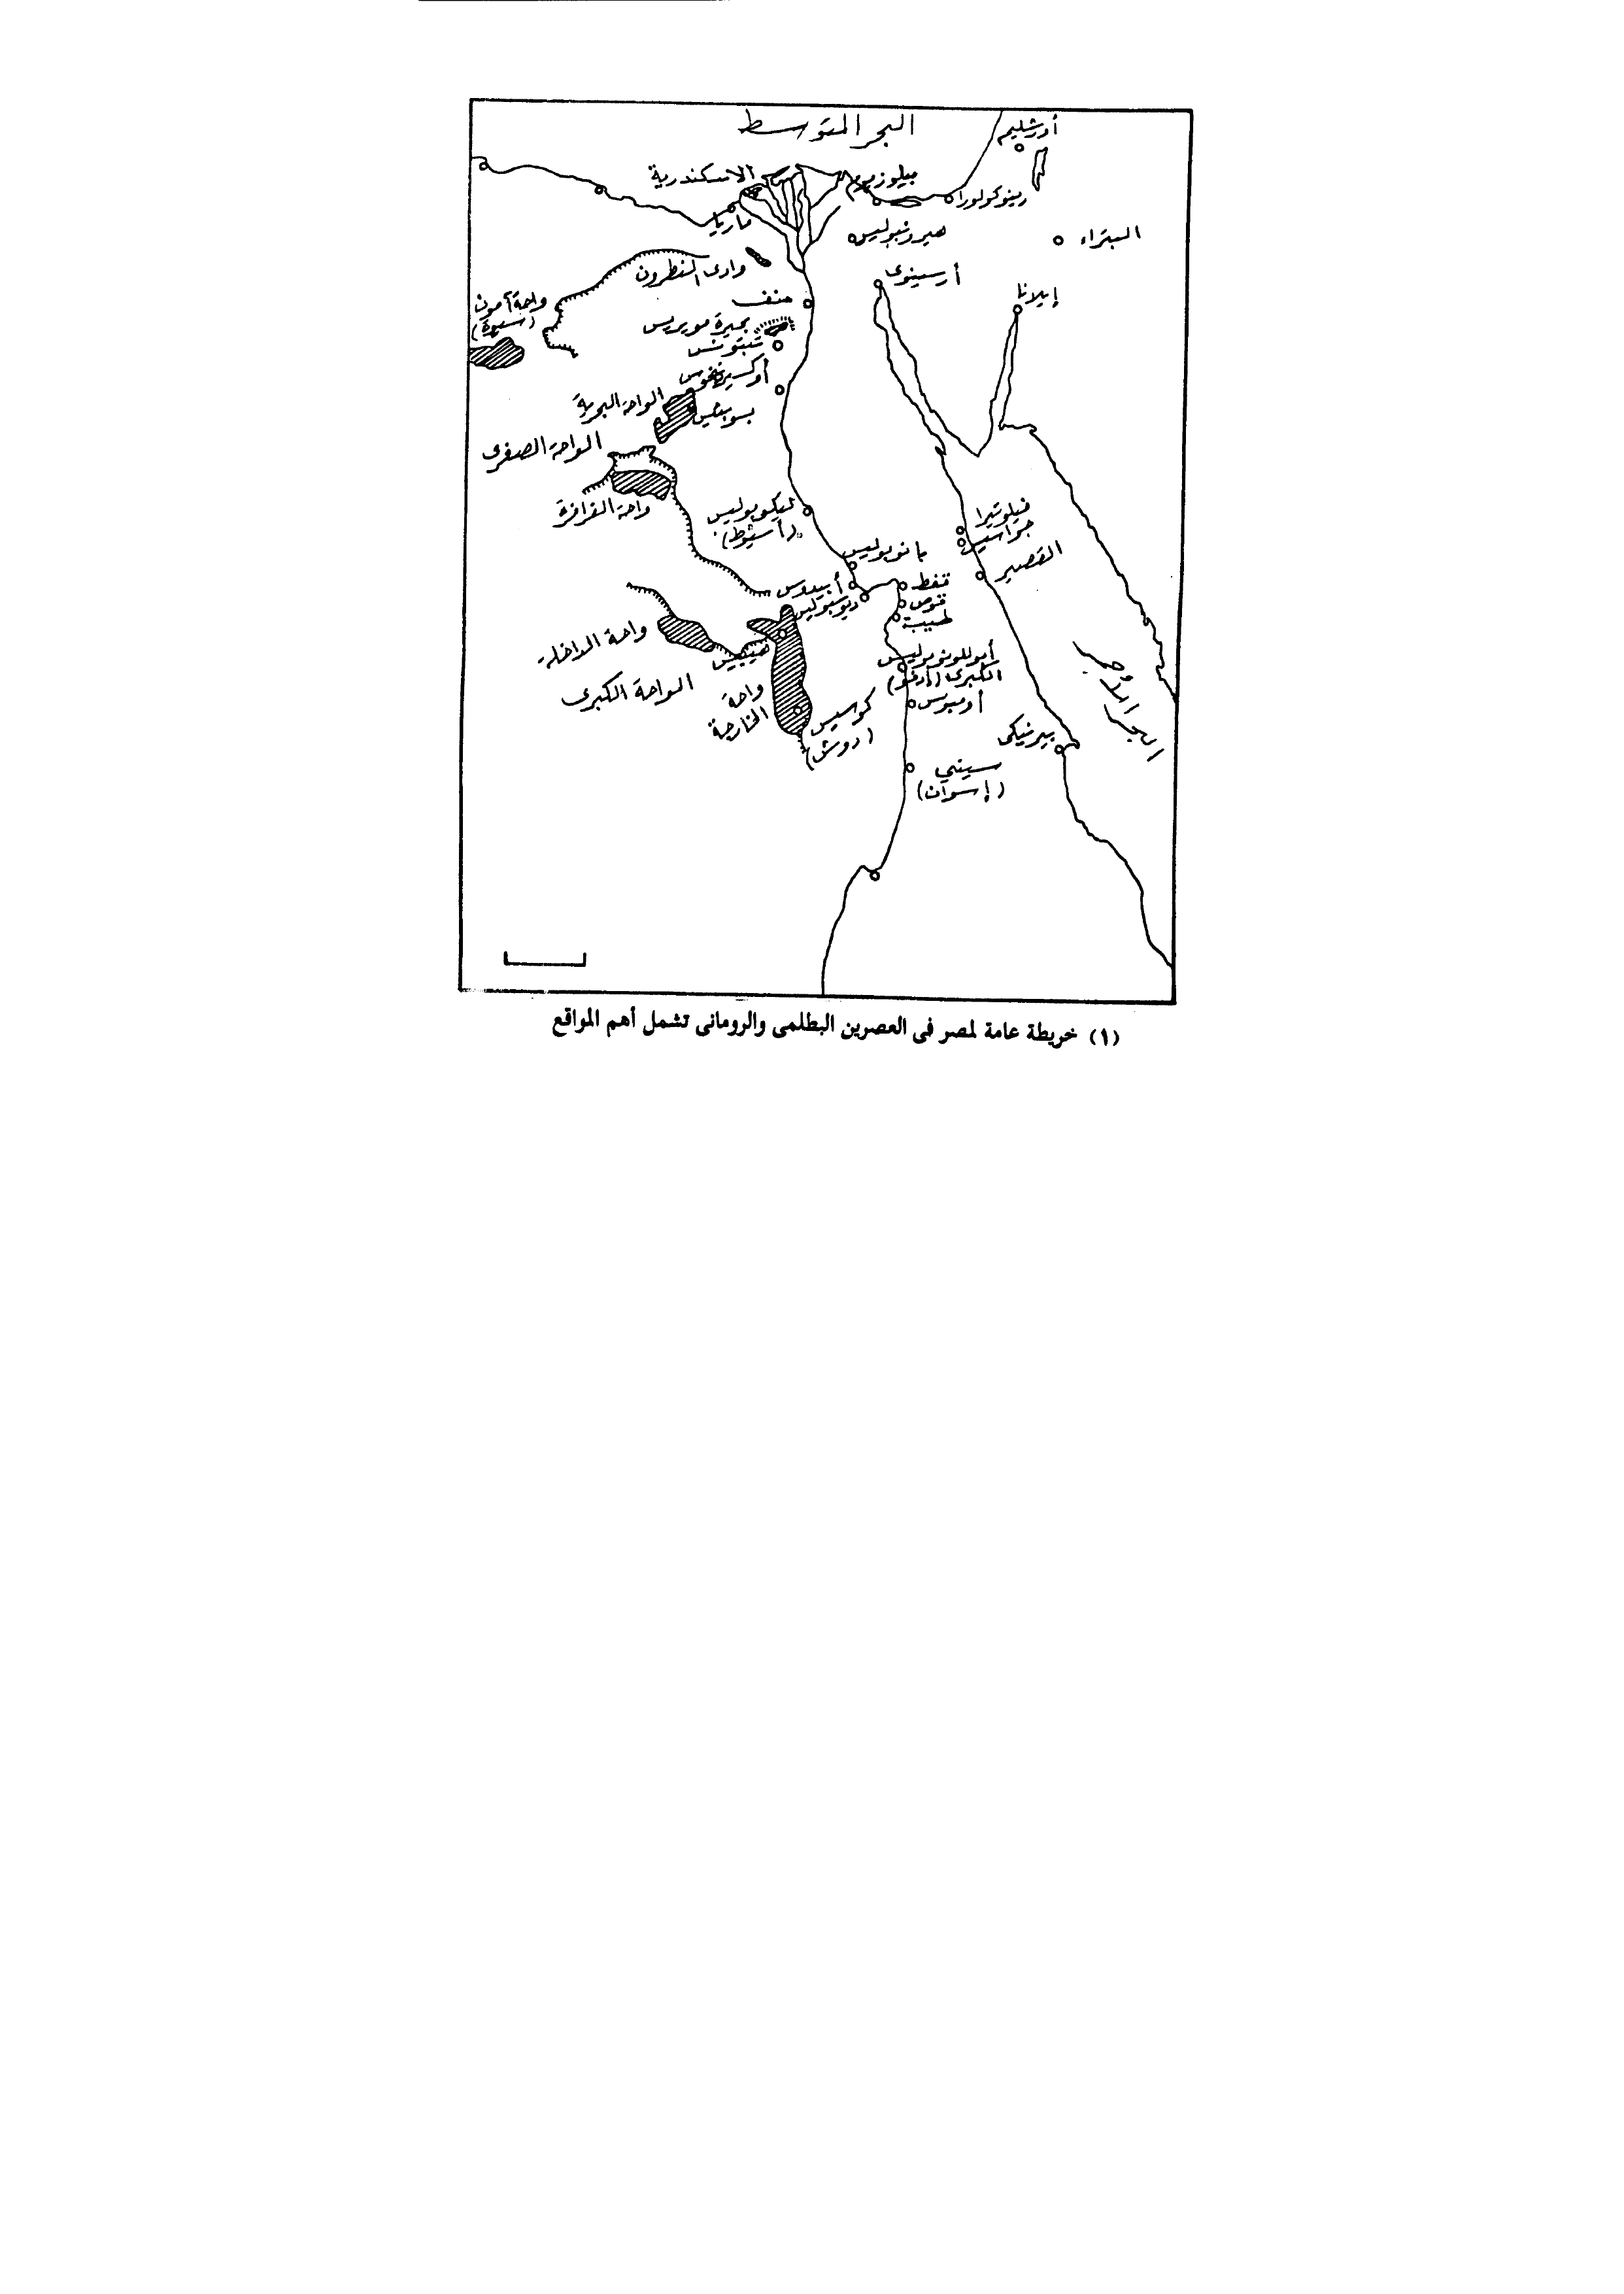 البحر المتوسط
أورشليم
الاسكندرية
بيلوزيوم
رينوكولورا
ماريا
هيرونبوليس
البتراء
وادى النطرون
أرسينوى
إيلانا
واحة آمون
(سيوة)
منف
بحيرة موريس
تبتونس
أوكسيرنخوس
الواحة البحرية
الواحة الصغرى
واحة الفرافرة
ليكوبوليس
(أسيوط)
فيلوتيرا
القصير
بانوبوليس
أبيدوس
ديوسبوليس
قفط
قوص
طيبة
واحة الداخلة
هيبيس
الواحة الكبرى
واحة
الخارجة
أبوللونوبوليس
الكبرى (إدفو)
أومبوس
كوسيس
(دوش)
بيرنيكى
سينى
(إسوان)
البحر الأحمر
(١) خريطة عامة لمصر فى العصرين البطلمى والرومانى تشمل أهم المواقع